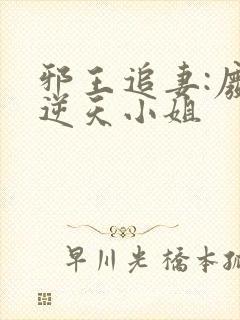 邪王追妻:废
逆天小姐
早川光橋本孤